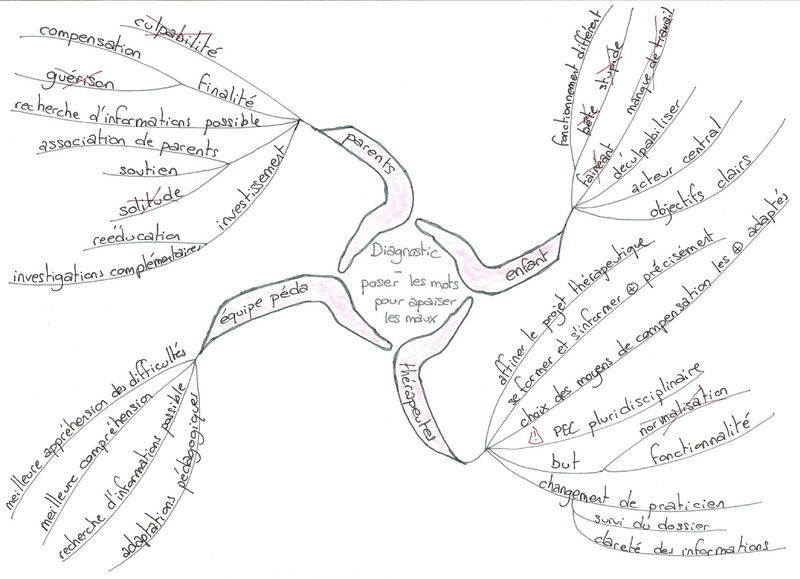 Diagnostic
-
poser les mots
pour apaiser
les maux
parents
culpabilité
finalité
compensation
guérison
recherche d'informations possible
investissement
association de parents
soutien
solitude
rééducation
investigations complémentaires
enfant
fonctionnement différent
bête stupide
fainéant manque de travail
déculpabiliser
acteur central
objectifs clairs
thérapeutes
affiner le projet thérapeutique
se former et s'informer ⊕ précisément
choix des moyens de compensation les ⊕ adaptés
⚠ PEC pluridisciplinaire
but
normalisation
fonctionnalité
changement de praticien
suivi du dossier
clareté des informations
équipe péda
meilleure appréhension des difficultés
meilleure compréhension
recherche d'informations possible
adaptations pédagogiques